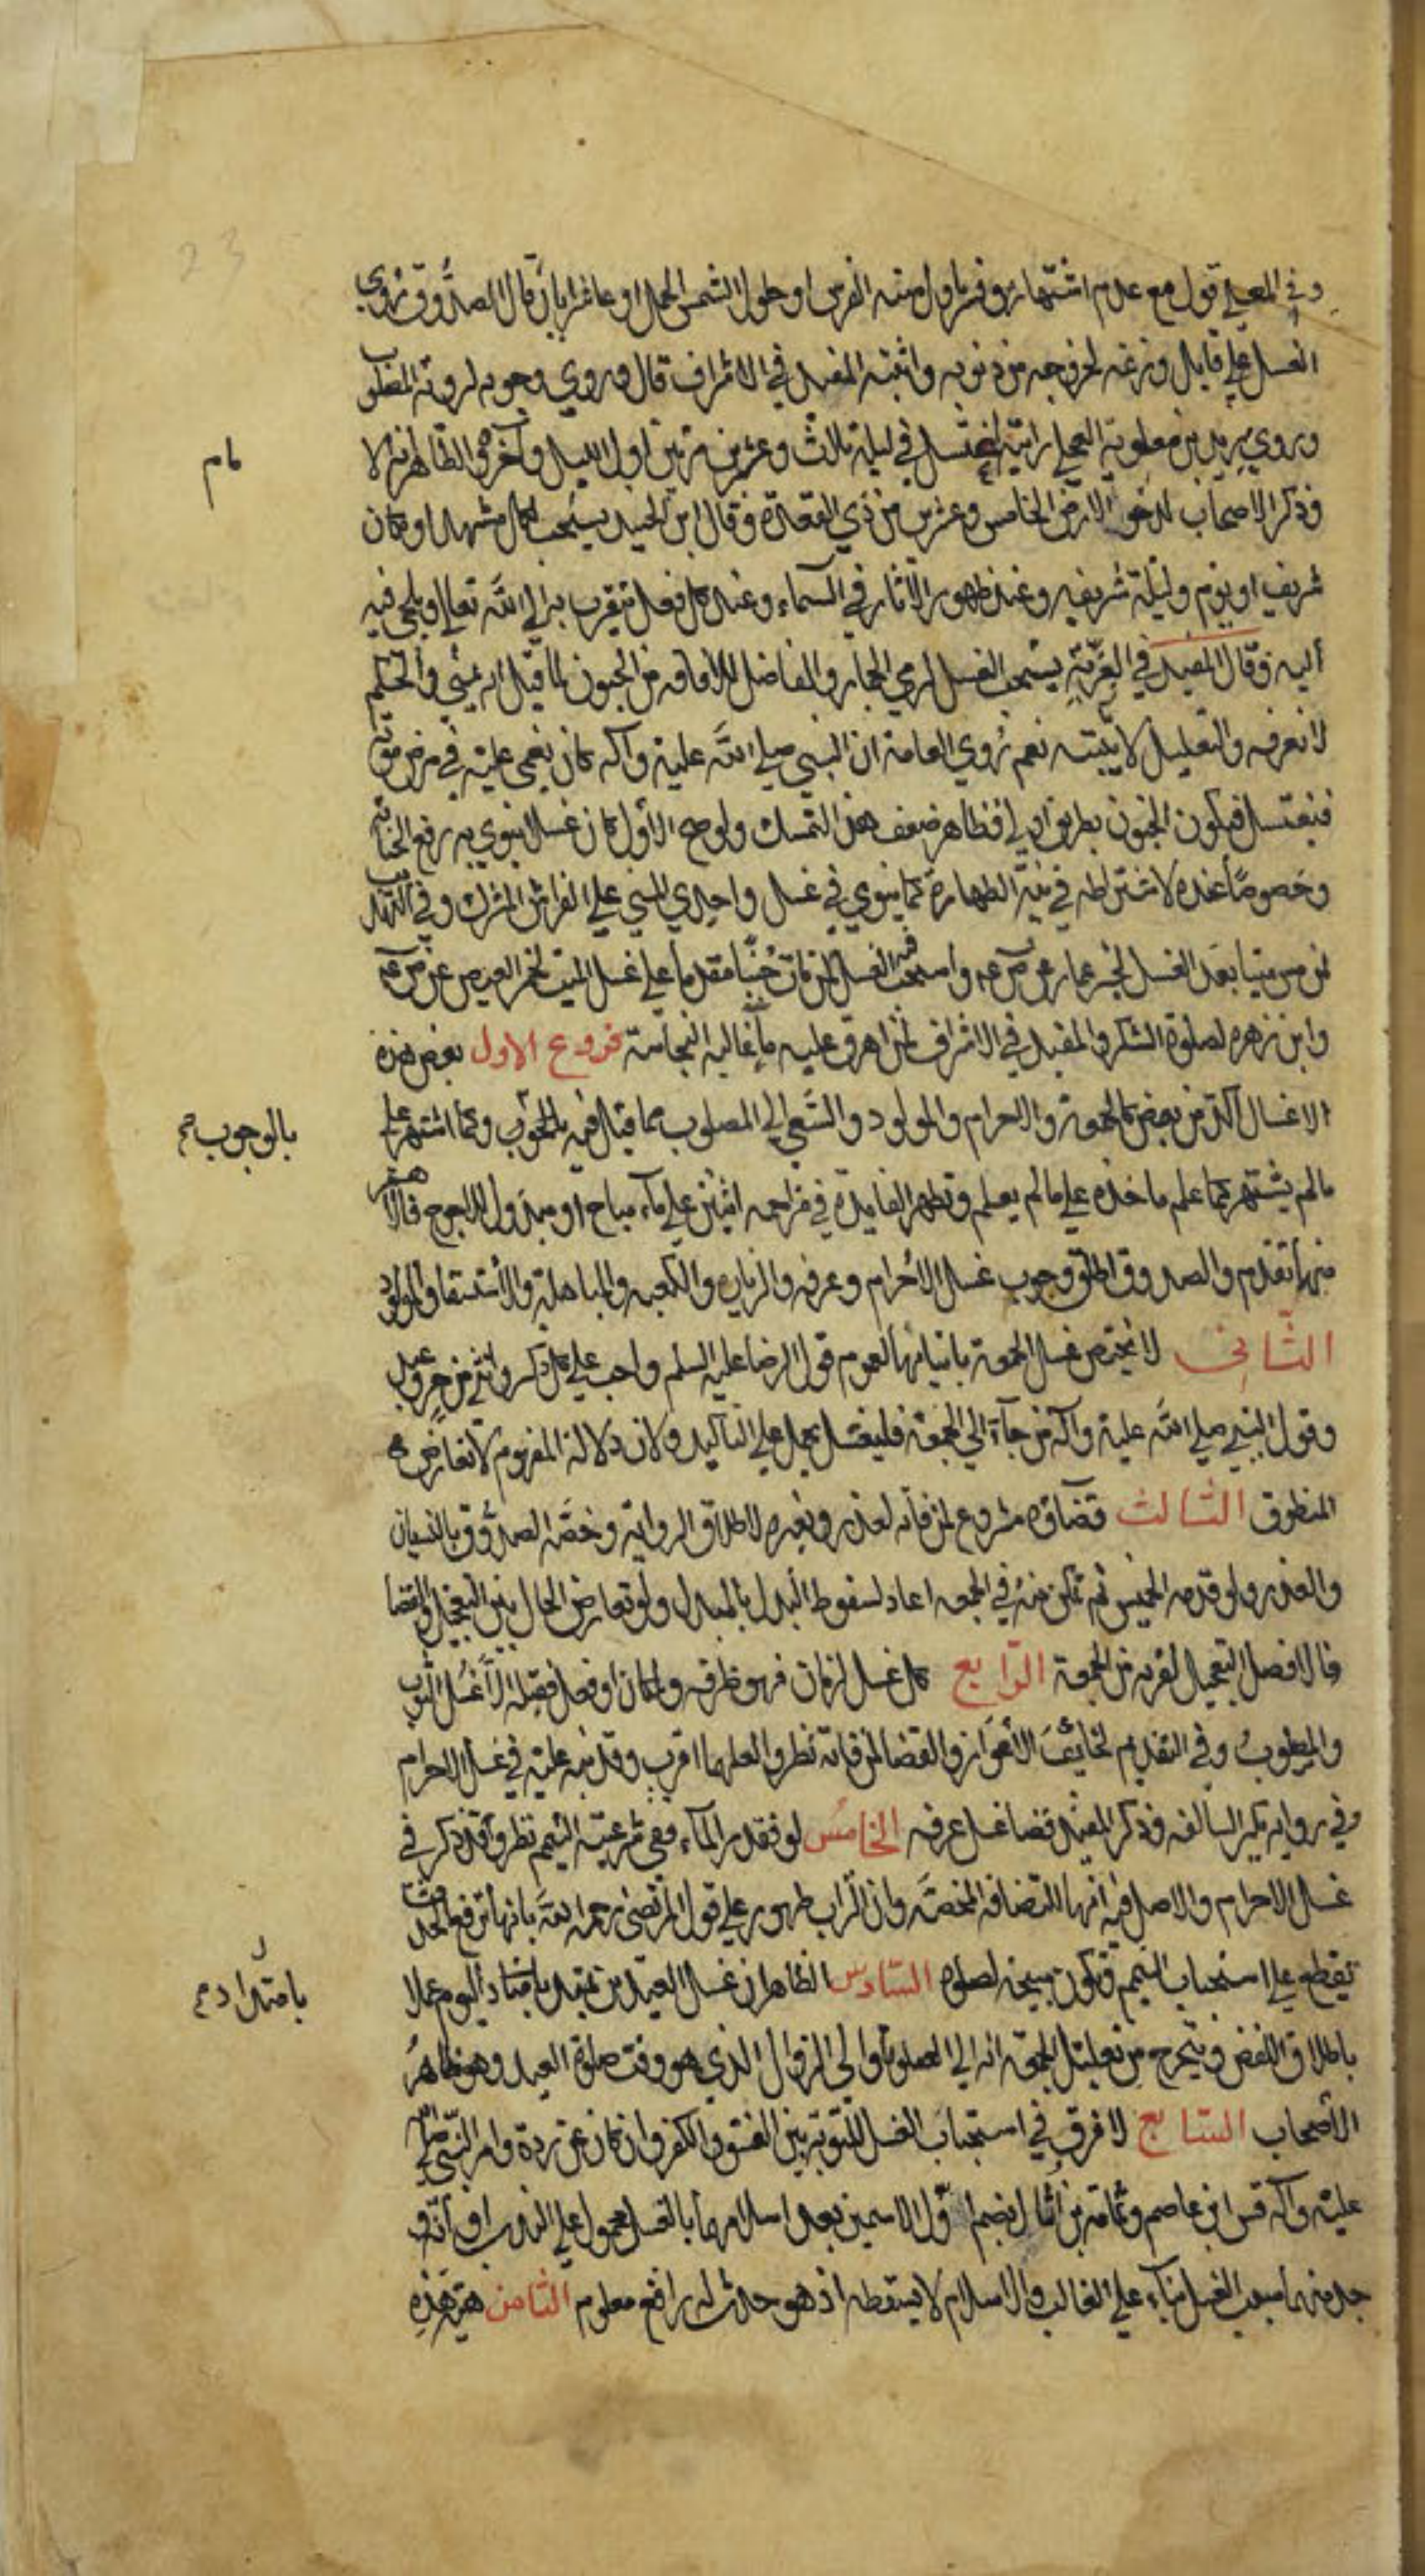 وفي المعبد قول مع عدم اشتهاره وفسر باول سنة الفرس او حلول الشمس الحمل او عاشر ايار قال الصدوق روي
الغسل على قاتل وزغه لخروجه من ذنوبه واثبته المفيد في الاشراف قال وروي وجوبه لرؤية المصلوب
وروي بريد بن معوية العجلي رايته اغتسل في ليلة ثلاث وعشرين مرتين اول الليل وآخره والظاهر انه الا
مام
وذكر الاصحاب لدحو الارض الخامس وعشرين من ذي القعدة وقال ابن الجنيد يستحب لكل مشهد او مكان
شريف او يوم وليلة شريفه وعند ظهور الآثار في السماء وعند كل فعل يتقرب به الى الله تعالى ويلجئ فيه
اليه وقال المفيد في العزية يستحب الغسل لرمي الجمار والفاضل للافاقه من الجنون لما قيل انه يمني والحكم
لا نعرفه والتعليل لا يثبته نعم روي العامة ان النبي صلى الله عليه وآله كان يغمى عليه في مرض موته
فيغتسل فيكون الجنون بطريق اولى فظاهر ضعف هذا التمسك ولو صح الاول كان غسلا ينوي به رفع الجنابه
وخصوصا عنده لاشتراطه في نية الطهارة كما ينوي في غسل واجدي المني على الفراش المشترك وفي التهذيب
لمن مس ميتا بعد الغسل لخبر عمار عن ص ع واستحب فيه الغسل لمن مات جنبا مقدما على غسل الميت لخبر العيص عن ص ع
وابن زهره لصلوة الشكر والمفيد في الاشراف لمن اهرق عليه ماء غالب النجاسة فروع الاول بعض هذه
الاغسال آكد من بعض كالجمعة والاحرام والمولود والسعي الى المصلوب مما قيل فيه بالوجوب وكما اشتهر على
بالوجوب صح
مالم يشتهر كما علم ماخذه على مالم يعلم وتظهر الفايدة في مزاحمه اثنين على ماء مباح او مبذول للاحوج فالاهم
منها تقدم والصدوق اطلق وجوب غسل الاحرام وعرفه والزياره والكعبه والمباهلة والاستسقا والمولود
الثاني لا يختص غسل الجمعة باتيانها لعموم قول الرضا عليه السلم واجب على كل ذكر وانثى من حر وعبد
وقول النبي صلى الله عليه وآله من جآء الى الجمعة فليغتسل يحمل على التأكيد ولان دلالة المفهوم لا تعارض
المنطوق الثالث قضاؤه مشروع لمن فاته لعذر وغيره لاطلاق الرواية وخصه الصدوق بالنسيان
والعذر ولو قدمه الخميس ثم تمكن منه في الجمعه اعاد لسقوط البدل بالمبدل ولو تعارض الحال بين التعجيل والقضا
فالافضل التعجيل لقربه من الجمعة الرابع كل غسل لزمان فهو ظرفه ولمكان او فعل فقبله الا غسل التوبه
والمصلوب وفي التقديم لخايف الاعواز والقضا لمن فاته نظر ولعلهما اقرب وقد نبه عليه في غسل الاحرام
وفي رواية بكير السالفه وذكر المفيد قضا غسل عرفه الخامس لو فقد الماء ففي شرعية التيمم نظر وقد ذكر في
غسل الاحرام والاصل فيه انها للنضافه المحضه وان التراب طهور وعلى قول المرتضى رحمه الله بانها ترفع الحدث
يقطع على استحباب التيمم وتكون مبيحة لصلوه السادس الظاهر ان غسل العيدين يمتد بامتداد اليوم عملا
بامتداد صح
باطلاق اللفظ ويتخرج من تعليل الجمعه انه الى الصلوة او الى الزوال الذي هو وقت صلوة العيد وهو ظاهر
الأصحاب السابع لا فرق في استحباب الغسل للتوبة بين الفسق والكفر وان كان عن ردة وامر النبي صلى الله
عليه وآله قيس ابن عاصم وثمامة بن اثال بضم اول الاسمين بعد اسلامهما بالغسل محمول على الندب او انه و
جد منهما سبب الغسل بناء على الغالب والاسلام لا يسقطه اذ هو حدث له رافع معلوم الثامن هل هذه